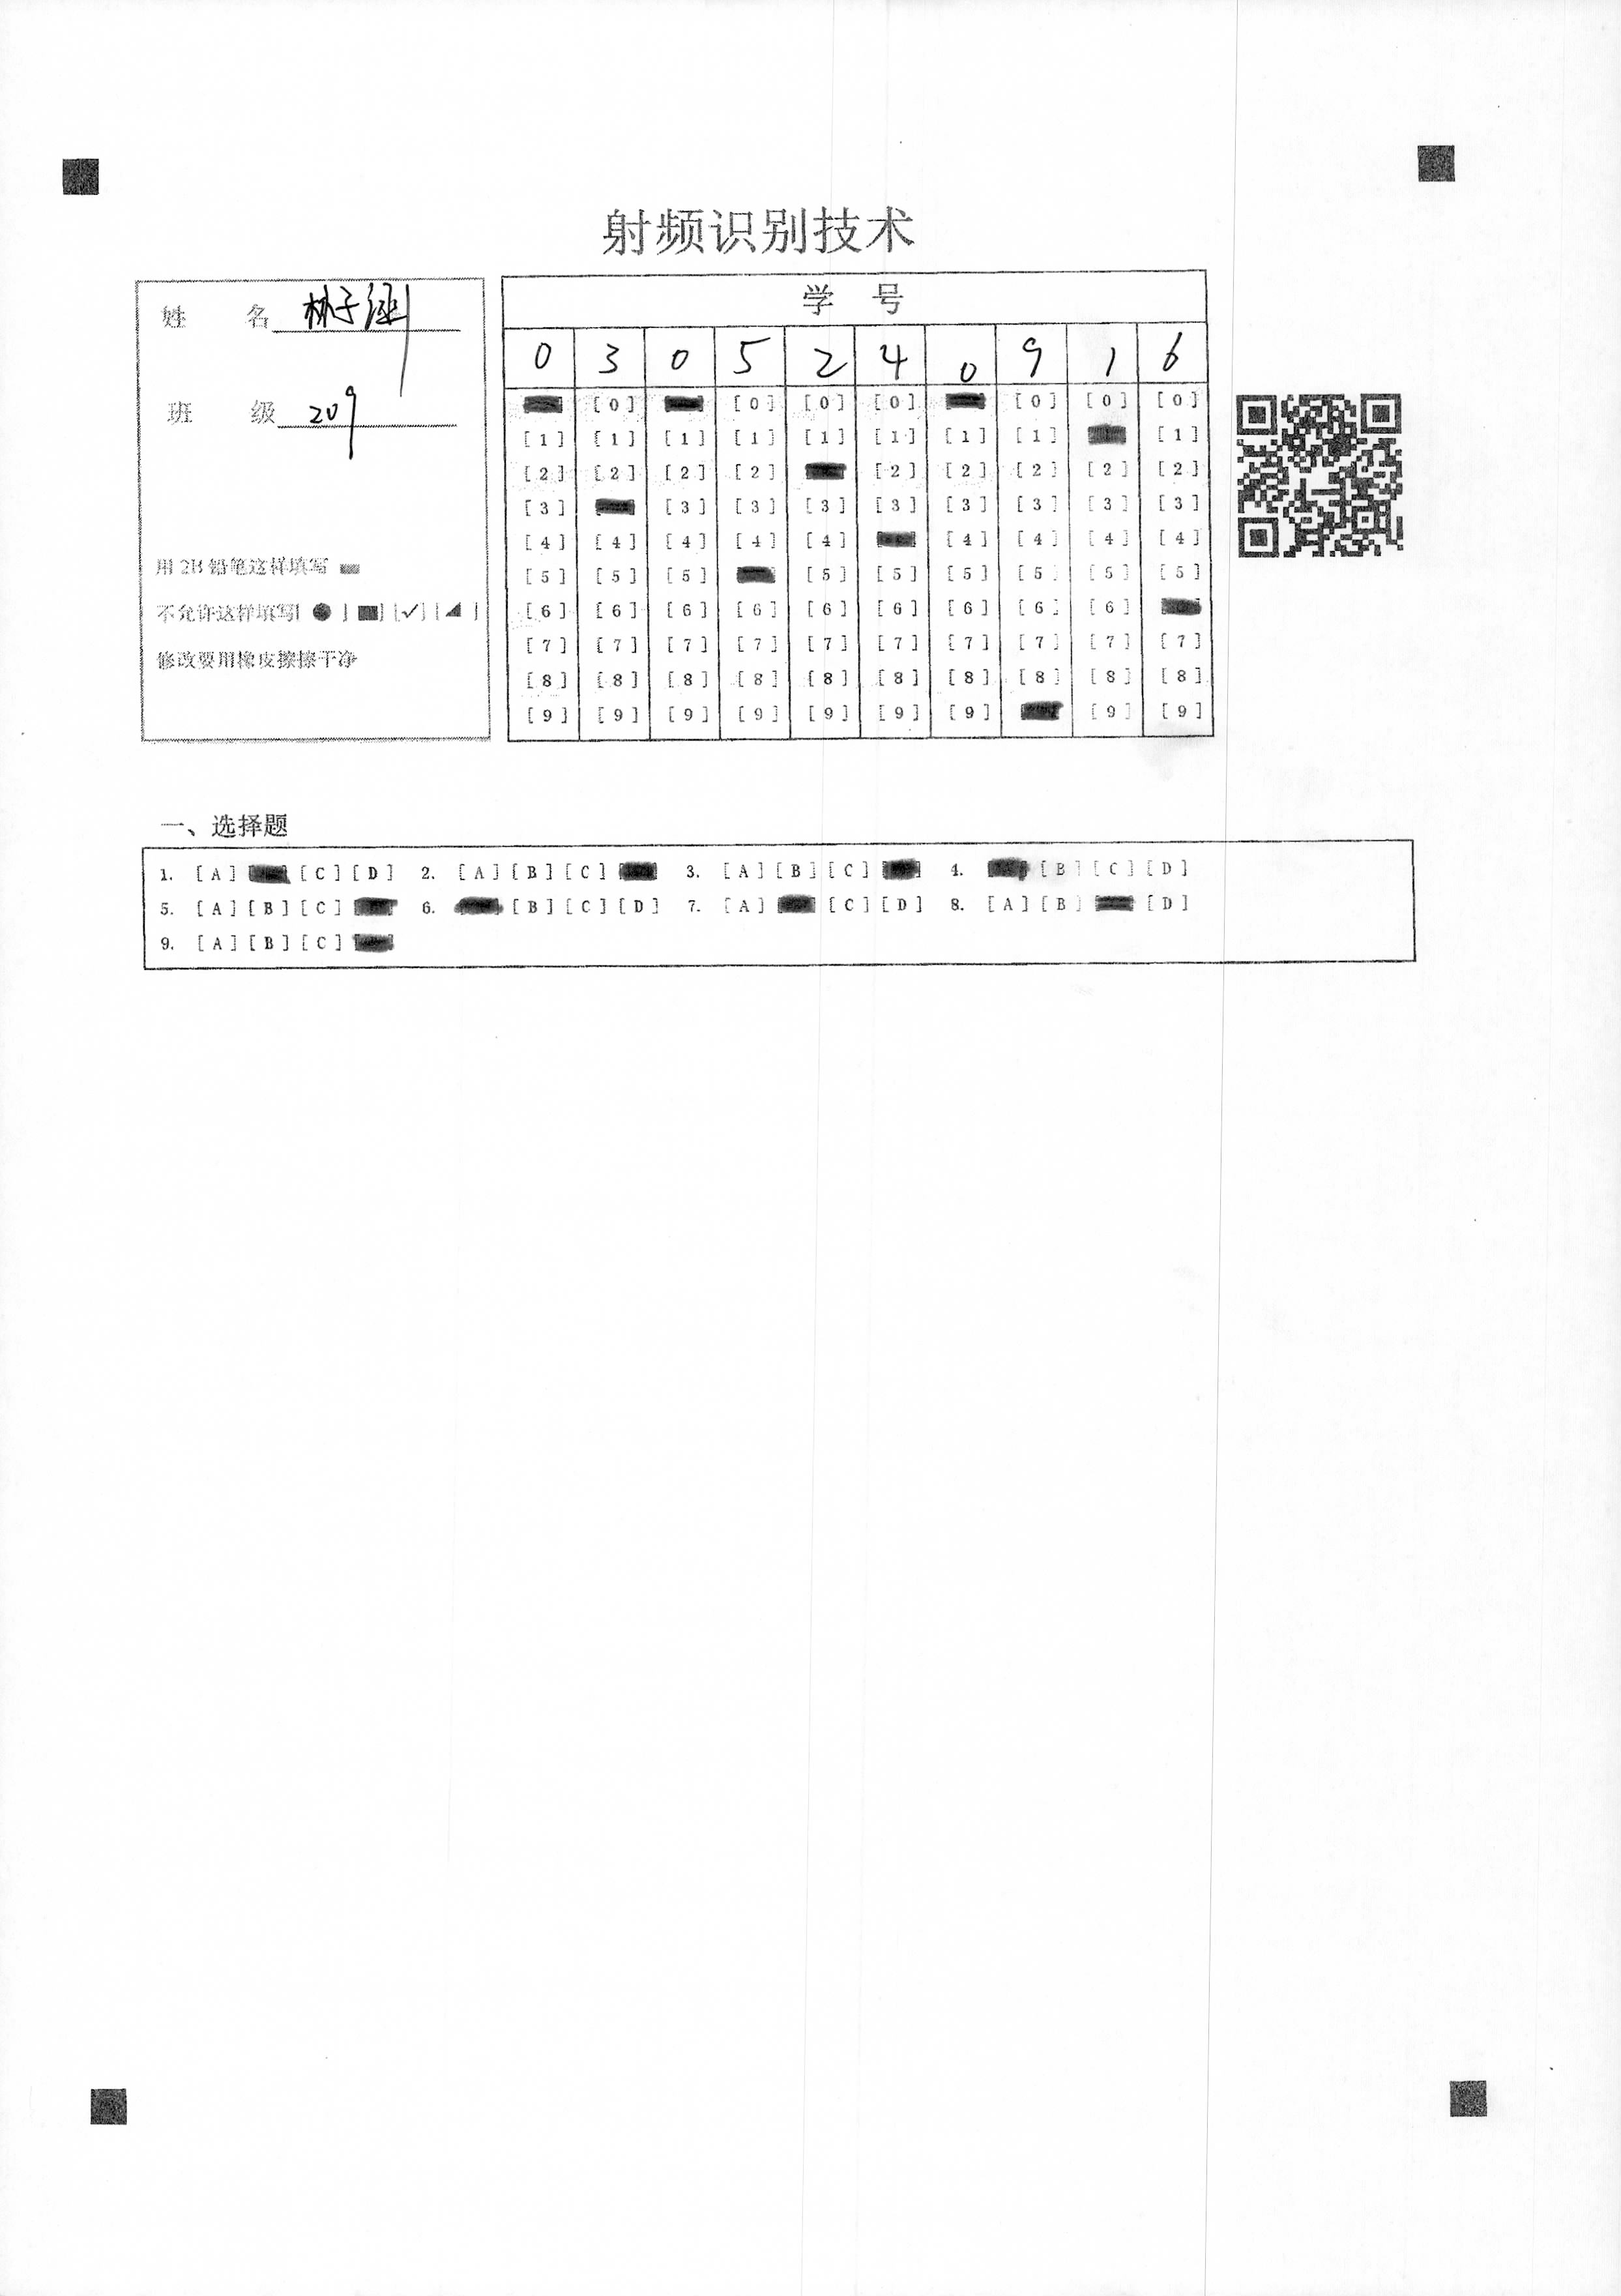 射频识别技术
姓 名 林子涵
班 级 209
用 2B 铅笔这样填写
不允许这样填写[ ● ] [■] [✓] [◢ ]
修改要用橡皮擦擦干净
学 号
0 3 0 5 2 4 0 9 1 6
[0] [0] [0] [0] [0] [0] [0]
[1] [1] [1] [1] [1] [1] [1] [1] [1]
[2] [2] [2] [2] [2] [2] [2] [2] [2]
[3] [3] [3] [3] [3] [3] [3] [3] [3]
[4] [4] [4] [4] [4] [4] [4] [4] [4]
[5] [5] [5] [5] [5] [5] [5] [5] [5]
[6] [6] [6] [6] [6] [6] [6] [6] [6]
[7] [7] [7] [7] [7] [7] [7] [7] [7] [7]
[8] [8] [8] [8] [8] [8] [8] [8] [8] [8]
[9] [9] [9] [9] [9] [9] [9] [9] [9]
一、选择题
1. [A] [C] [D] 2. [A] [B] [C] 3. [A] [B] [C] 4. [B] [C] [D]
5. [A] [B] [C] 6. [B] [C] [D] 7. [A] [C] [D] 8. [A] [B] [D]
9. [A] [B] [C]